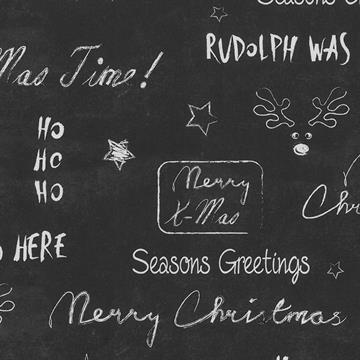 Seasons
RUDOLPH WAS
Mas Time!
HO
HO
HO
Merry
X-Mas
Chri
HERE
Seasons Greetings
Merry Christmas